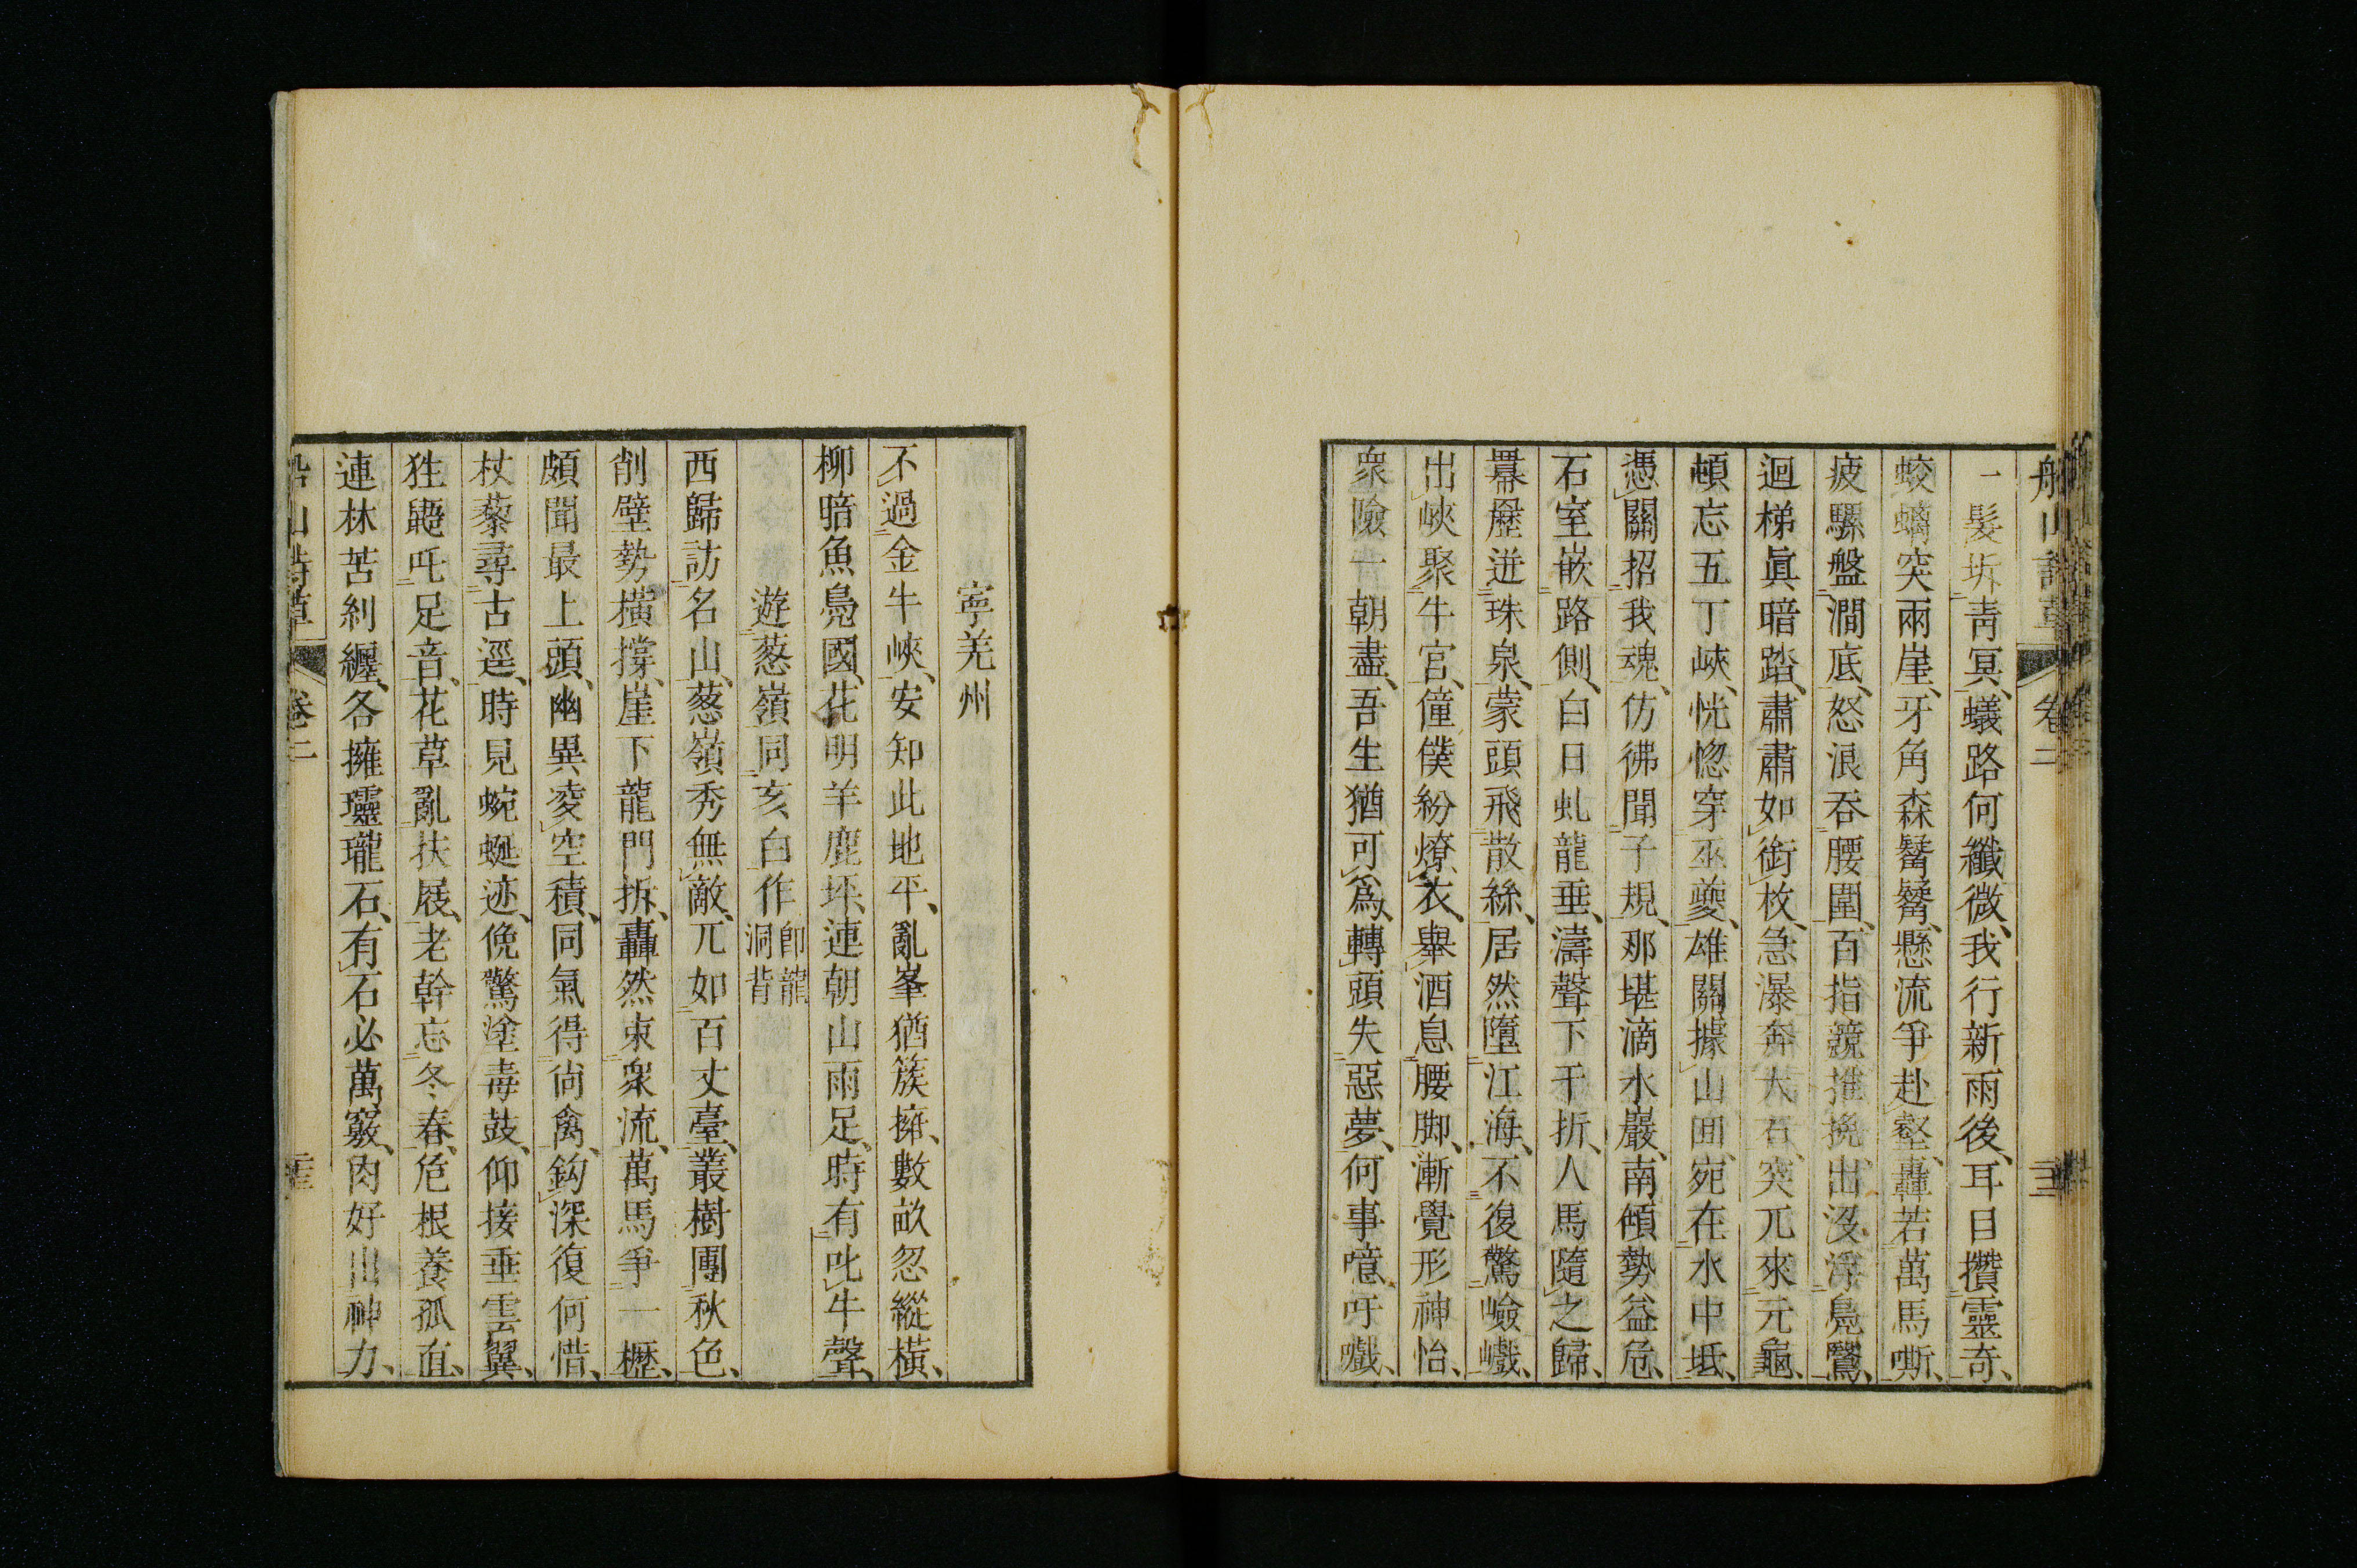 船山詩草 卷二
一髮坼青冥、蟻路何纖微、我行新雨後、耳目攢靈奇、
蛟螭突兩崖、牙角森鬐鬐、懸流爭赴壑、轟若萬馬嘶、
疲騾盤澗底、怒浪吞腰圍、百指競推挽、出沒浮鳧鷖、
迴梯眞暗踏、肅肅如銜枚、急瀑奔大石、突兀來元龜、
頓忘五丁峽、恍惚穿巫夔、雄關據山囬、宛在水中坻、
憑關招我魂、仿彿聞子規、那堪滴水巖、南傾勢益危、
石室嵌路側、白日虬龍垂、濤聲下千折、人馬隨之歸、
羃䍥迸珠泉、蒙頭飛散絲、居然墮江海、不復驚嶮巇、
出峽聚牛宮、僮僕紛燎衣、舉酒息腰脚、漸覺形神怡、
衆險一朝盡、吾生猶可爲、轉頭失惡夢、何事噫吁嚱、
寧羌州
不過金牛峽、安知此地平、亂峯猶簇擁、數畝忽縱橫、
柳暗魚鳧國、花明羊鹿坪、連朝山雨足、時有叱牛聲、
遊葱嶺同亥白作 卽龍洞背
西歸訪名山、葱嶺秀無敵、兀如百丈臺、叢樹團秋色、
削壁勢橫撐、崖下龍門拆、轟然束衆流、萬馬爭一櫪、
頗聞最上頭、幽異凌空積、同氣得尙禽、鈎深復何惜、
杖藜尋古逕、時見蜿蜒迹、俛驚塗毒鼓、仰接垂雲翼、
狌鼯吒足音、花草亂扶屐、老幹忘冬春、危根養孤直、
連林苦糾纒、各擁瓏瓏石、有石必萬竅、肉好山神力、
船山詩草 卷二